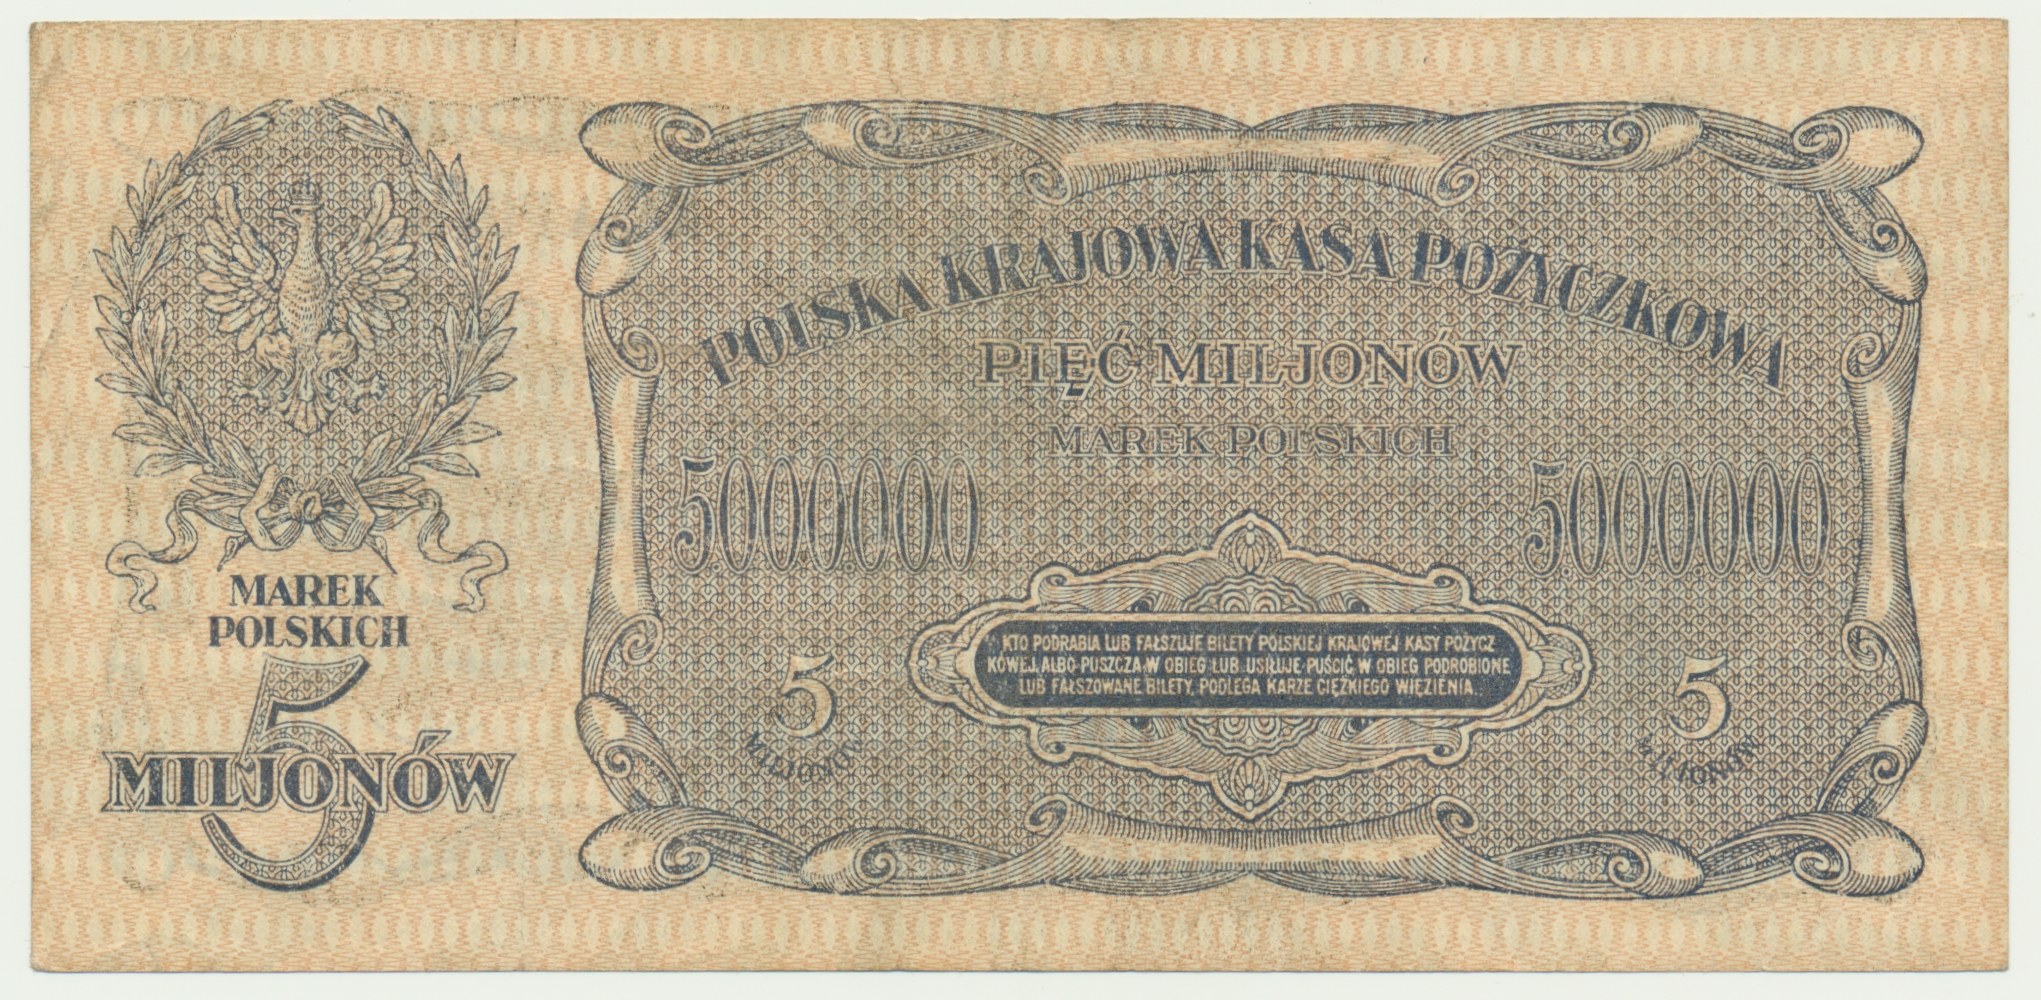 MAREK
POLSKICH
5
MILJONÓW
POLSKA KRAJOWA KASA POŻYCZKOWA
PIĘĆ MILJONÓW
MAREK POLSKICH
5.000.000
5.000.000
KTO PODRABIA LUB FAŁSZUJE BILETY POLSKIEJ KRAJOWEJ KASY POŻYCZ
KOWEJ, ALBO PUSZCZA W OBIEG LUB USIŁUJE PUŚCIĆ W OBIEG PODROBIONE
LUB FAŁSZOWANE BILETY, PODLEGA KARZE CIĘŻKIEGO WIĘZIENIA.
5
MILJONÓW
5
MILJONÓW